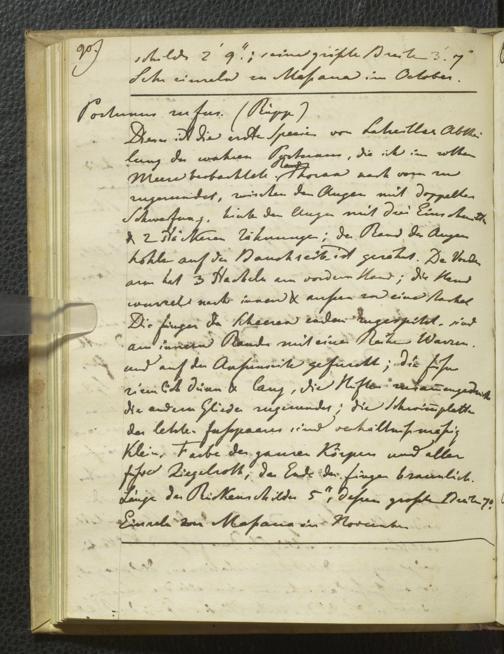 90)
schildes 2' 9"; seine größte Breite 3' 7"
Sehr einzeln zu Massaua im October.
Portunus rufus. (Rüpp)
Dieses ist die erste Species von Latreilles Abthei-
lung der wahren Portunus, die ich im rothen
Meere beobachtete. Thorax nach vorn zu
zugerundet, zwischen den Augen mit doppelter
Schweifung, hinter den Augen mit drei Einschnitten
& 2 stärkeren Zähnungen; der Rand der Augen
höhle auf der Bauchseite ist gezähnt. Der Vorder
arm hat 3 Stacheln am vordern Rand; die Hand
wurzel nach innen & außen zu eine Stachel
Die Finger der Scheeren enden zugespitzt, sind
am innern Rande mit einer Reihe Warzen
und auf der Außenseite gefurcht; die Füße
ziemlich dünn & lang, die Hüften zusammengedrückt
die andern Glieder zugerundet; die Schwimmplatte
des letzten Fußpaares sind verhältnißmäßig
klein. Farbe des ganzen Körpers und aller
Füße Ziegelroth, das Ende der Finger braunlich.
Länge des Rückenschildes 5", dessen größte Breite 7"
Einzeln von Massaua im November